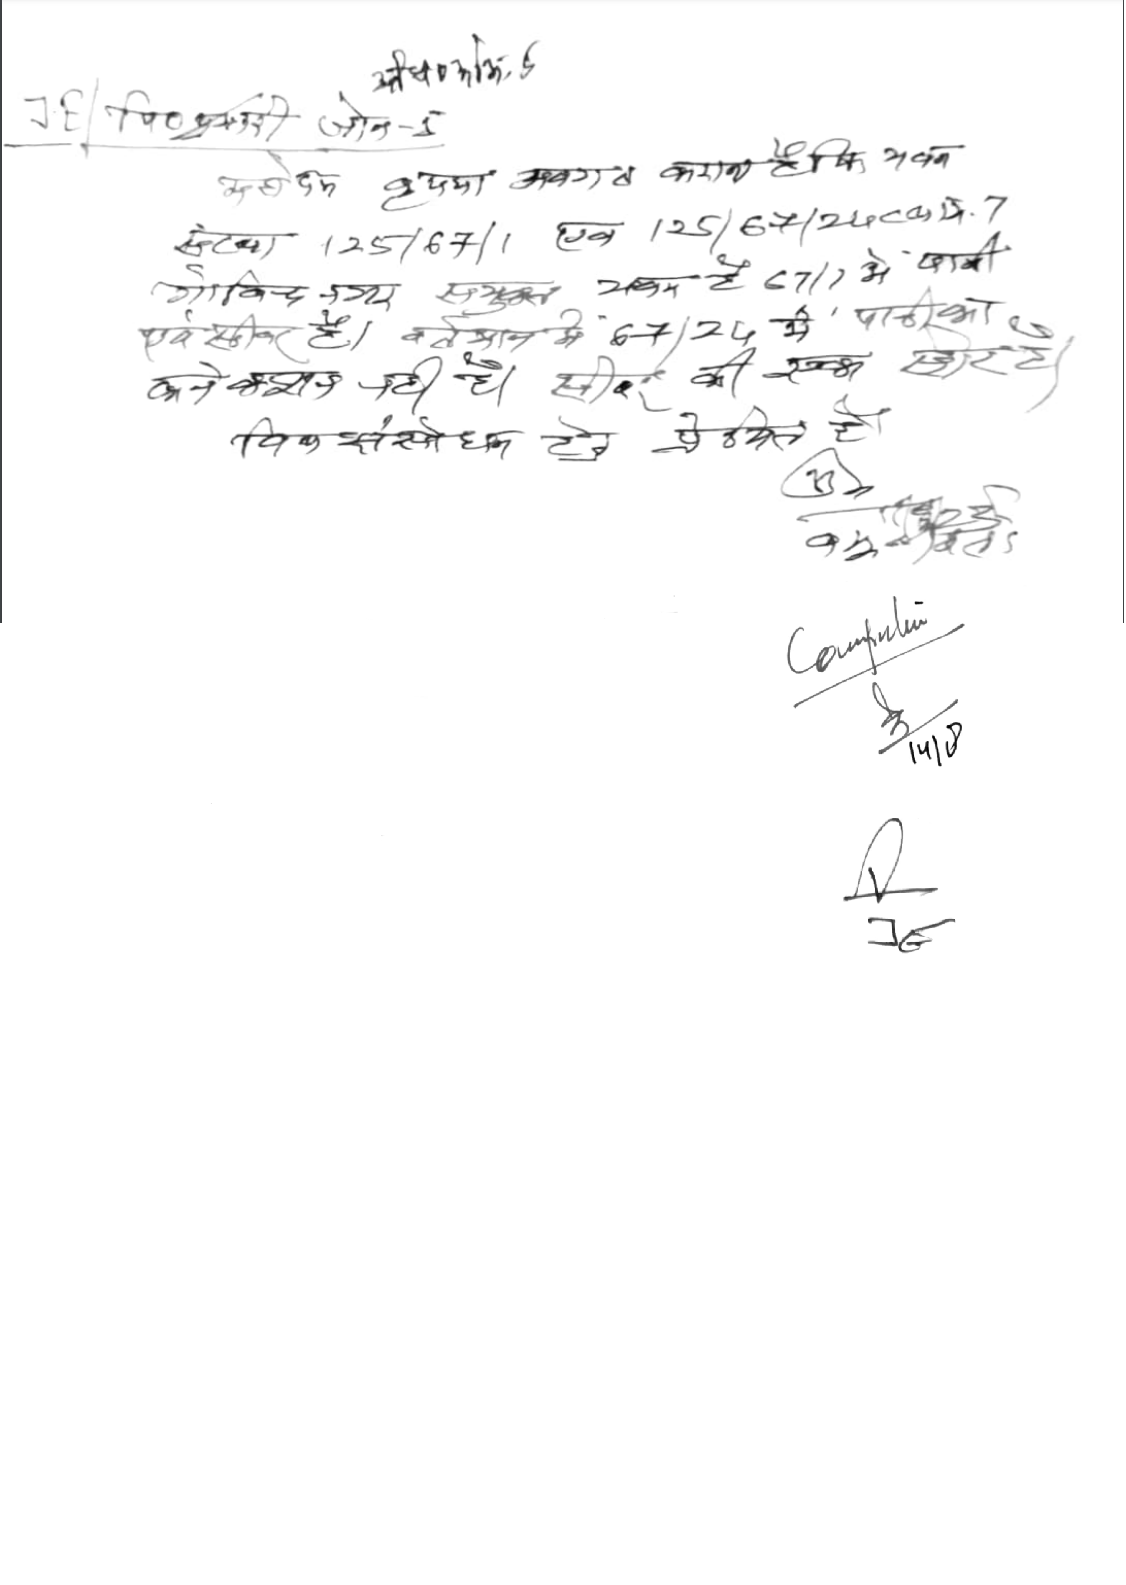 JE/ वि० प्रभारी जोन-5
महोदय कृपया अवगत कराना है कि भवन
संख्या 125/67/1 एवं 125/67/24 ब्लाक नं. 7
गोविन्द नगर संयुक्त भवन है 67/1 में पानी
एवं सीवर है। वर्तमान में 67/24 में पानी का
कनेक्शन नहीं है। सीवर की
बिल संसोधन हेतु प्रेषित है।
Computer
14/8
JE